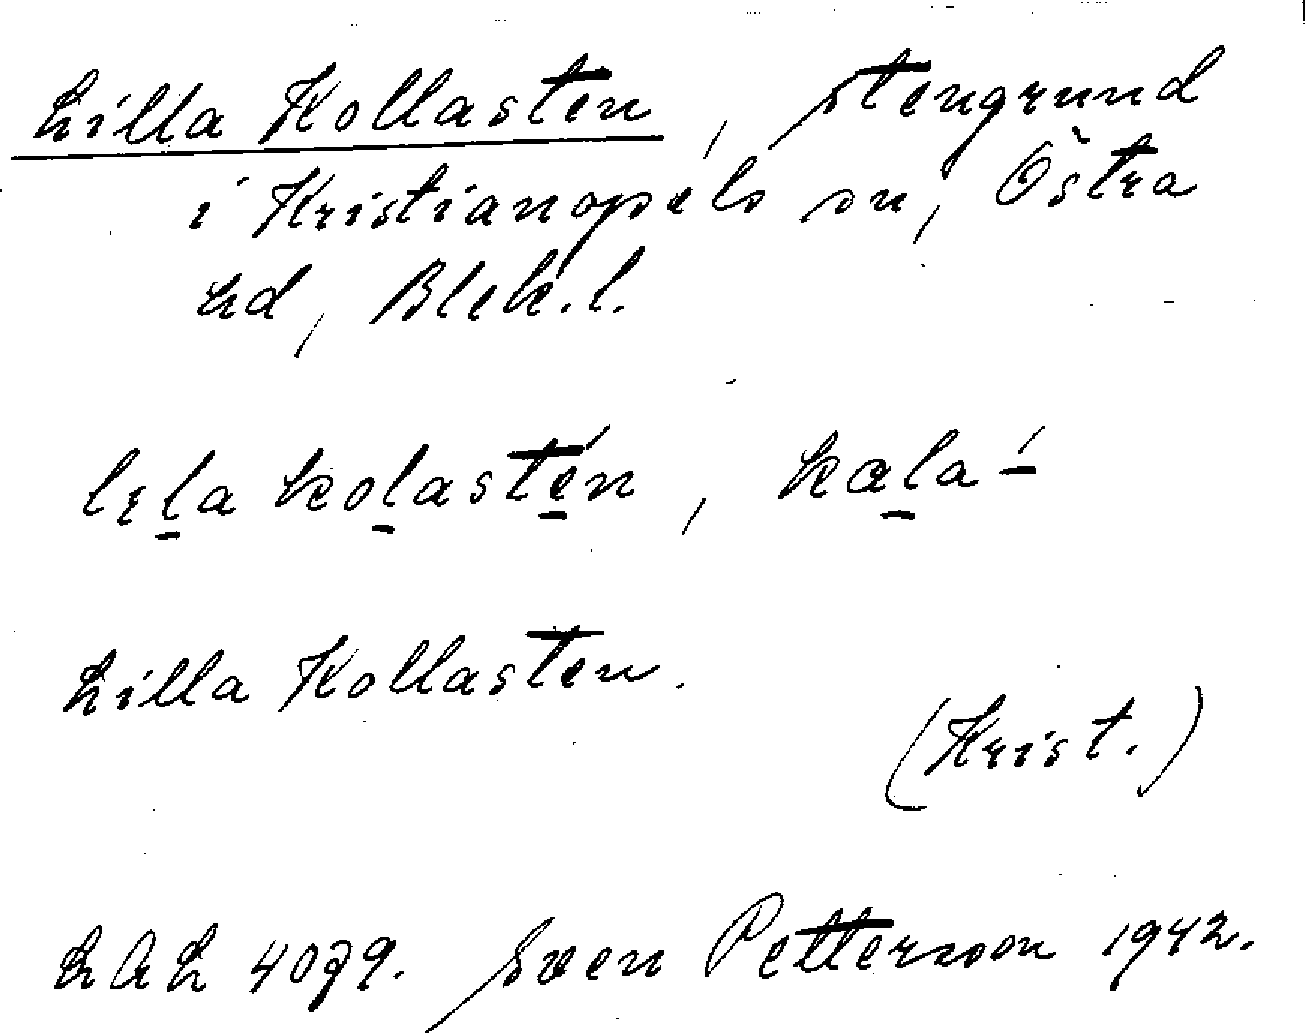 Lilla Kollasten, stengrund
i Kristianopels sn, Östra
hd, Blek.l.
lɛl̲a kol̲asté̲n, kœl̲a-́
Lilla Kollasten.
(Krist.)
LAL 4079. Sven Pettersson 1942.